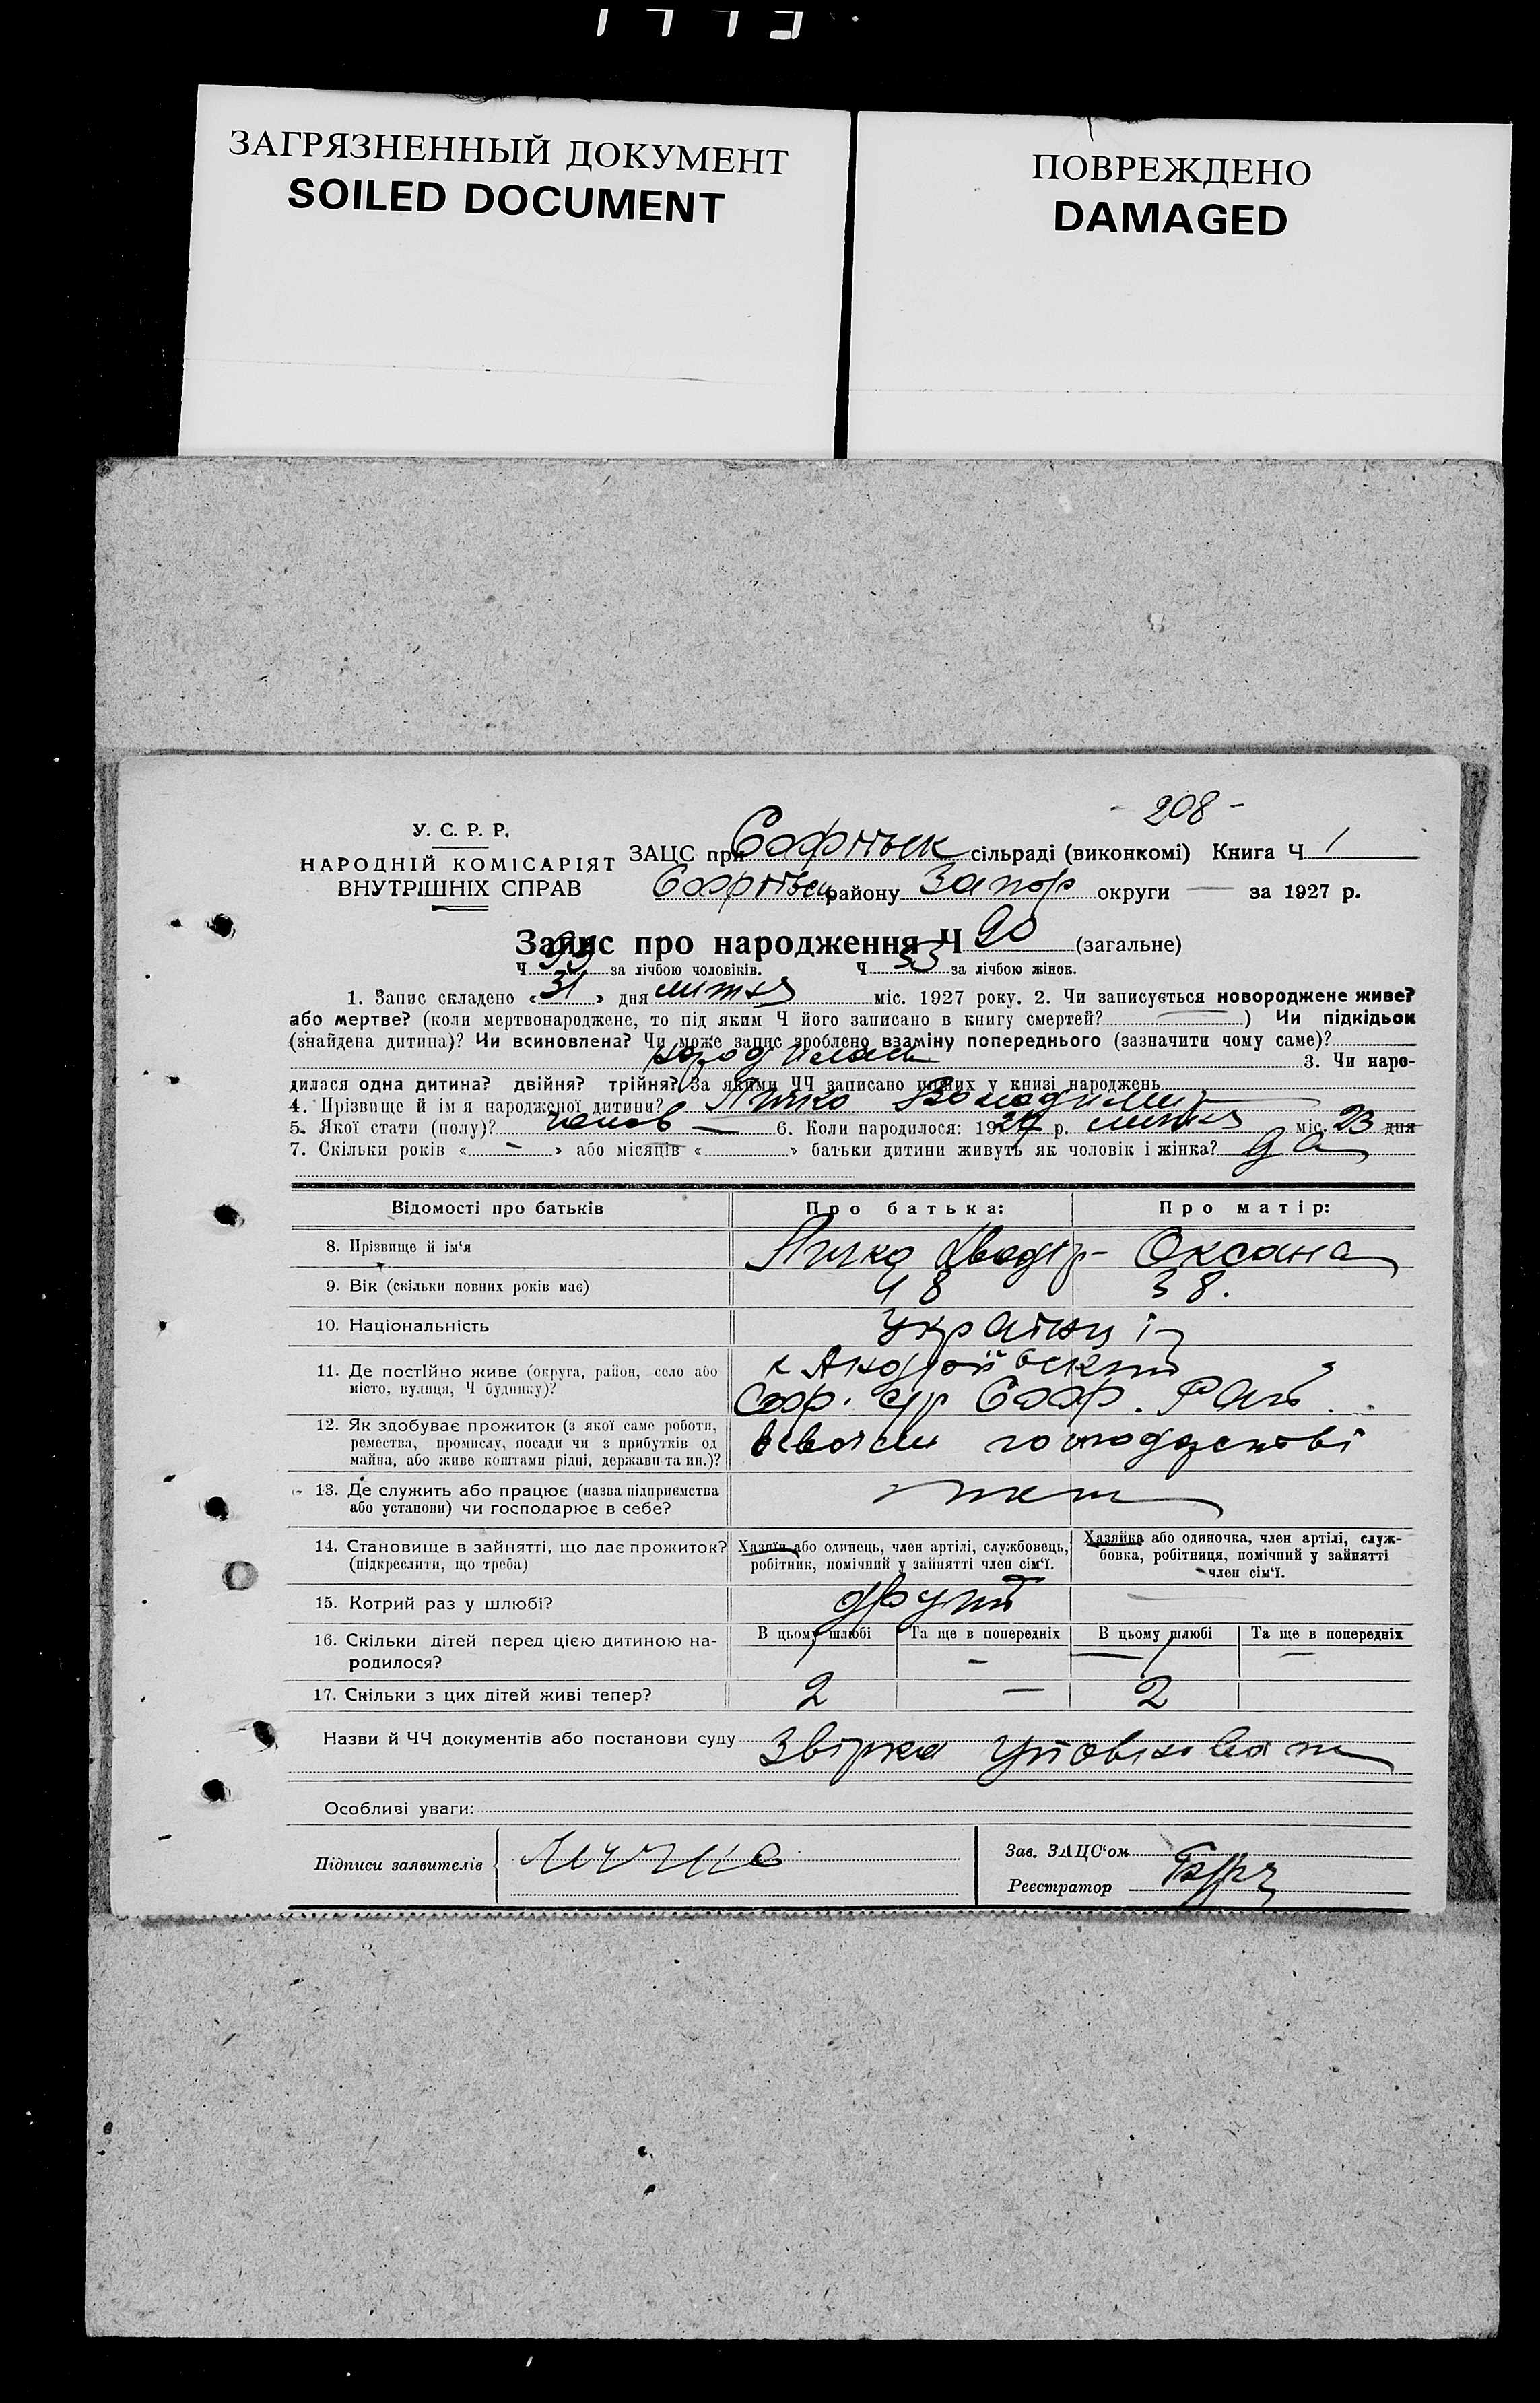 ЗАГРЯЗНЕННЫЙ ДОКУМЕНТ
SOILED DOCUMENT
ПОВРЕЖДЕНО
DAMAGED
- 208 -
У. С. Р. Р.
НАРОДНІЙ КОМІСАРІЯТ
ВНУТРІШНІХ СПРАВ
ЗАЦС при сільраді (виконкомі) Книга Ч 1
району Запор округи — за 1927 р.
Запис про народження Ч 90 (загальне)
Ч за лічбою чоловіків. Ч 33 за лічбою жінок.
1. Запис складено « 31 » дня липня міс. 1927 року. 2. Чи записується новороджене живе?
або мертве? (коли мертвонароджене, то під яким Ч його записано в книгу смертей? —) Чи підкідьок
(знайдена дитина)? Чи всиновлена? Чи може запис зроблено взаміну попереднього (зазначити чому саме)?
3. Чи наро-
дилася одна дитина? двійня? трійня? За якими ЧЧ записано инших у книзі народжень
4. Прізвище й ім'я народженої дитини? Личко Володимир
5. Якої стати (полу)? чолов — 6. Коли народилося: 1927 р. липня міс. 23 дня
7. Скільки років « - » або місяців « » батьки дитини живуть як чоловік і жінка? да
Відомості про батьків Про батька: Про матір:
8. Прізвище й ім'я Личко Оксана
9. Вік (скільки повних років має) 48 38.
10. Національність Українці
11. Де постійно живе (округа, район, село або
місто, вулиця, Ч будинку)?
х Андріївский
Соф. с/р Соф. Рай.
12. Як здобуває прожиток (з якої саме роботи,
ремества, промислу, посади чи з прибутків од
майна, або живе коштами рідні, держави та ин.)?
13. Де служить або працює (назва підприємства
або установи) чи господарює в себе?
14. Становище в зайнятті, що дає прожиток?
(підкреслити, що треба)
Хазяїн або одинець, член артілі, службовець,
робітник, помічний у зайнятті член сім'ї.
Хазяйка або одиночка, член артілі, служ-
бовка, робітниця, помічний у зайнятті
член сім'ї.
15. Котрий раз у шлюбі? другий —
16. Скільки дітей перед цією дитиною на-
родилося?
В цьому шлюбі Та ще в попередніх В цьому шлюбі Та ще в попередніх
17. Скільки з цих дітей живі тепер? 2 — 2
Назви й ЧЧ документів або постанови суду Звірка
Особливі уваги:
Підписи заявителів Личко
Зав. ЗАЦС'ом
Реєстратор